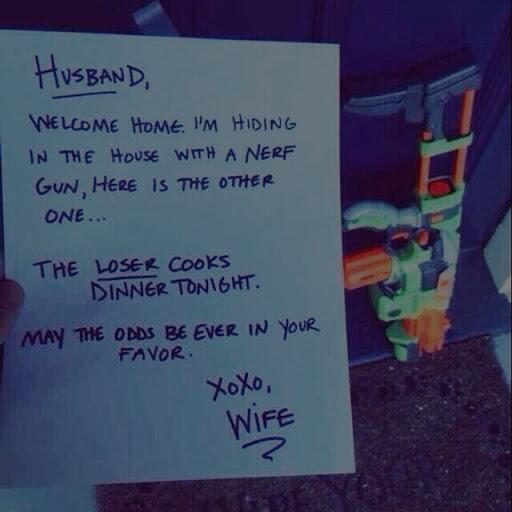 HUSBAND,
WELCOME HOME. I'M HIDING
IN THE HOUSE WITH A NERF
GUN, HERE IS THE OTHER
ONE...
THE LOSER COOKS
DINNER TONIGHT.
MAY THE ODDS BE EVER IN YOUR
FAVOR.
XOXO,
WIFE